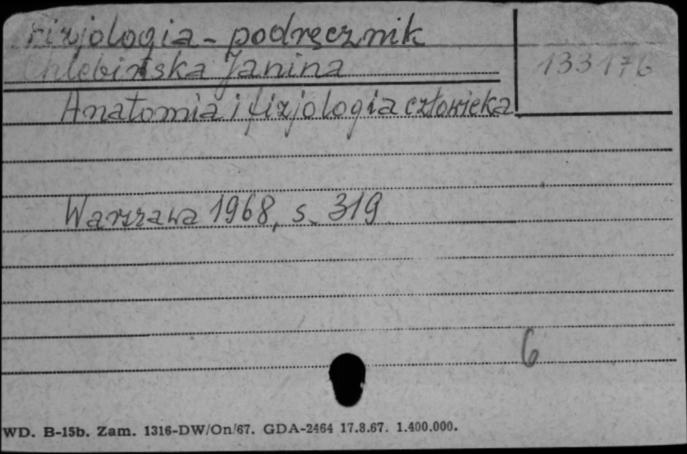 Fizjologia - podręcznik
Chlebińska Janina
133176
Anatomia i fizjologia człowieka
Warszawa 1968, s. 319
6
WD. B-15b. Zam. 1316-DW/On/67. GDA-2464 17.8.67. 1.400.000.